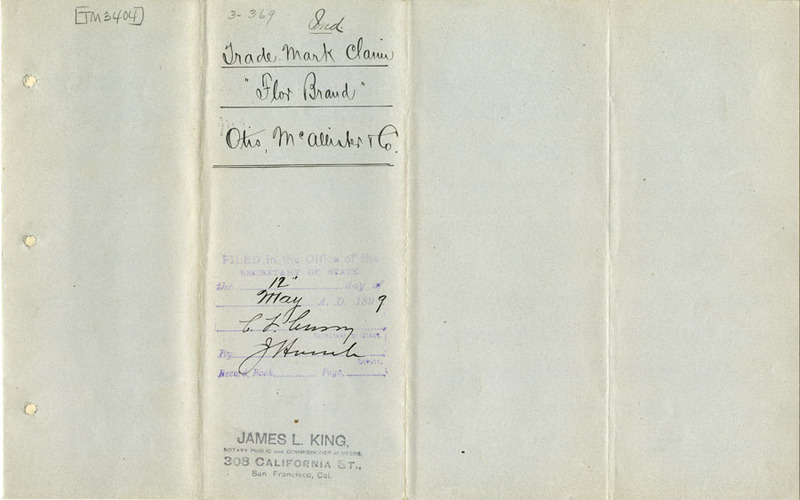 [TM3404]
3-369
Ind.
Trade-Mark Claim
"Flor Brand"
Otis, McAllister & Co.
FILED in the Office of the
SECRETARY OF STATE
the 12" day of
May A. D. 1899
C. F. Curry
Secretary of State.
By J Hoesch
Deputy.
Record Book, Page,
JAMES L. KING,
NOTARY PUBLIC and COMMISSIONER of DEEDS,
308 CALIFORNIA ST.,
San Francisco, Cal.